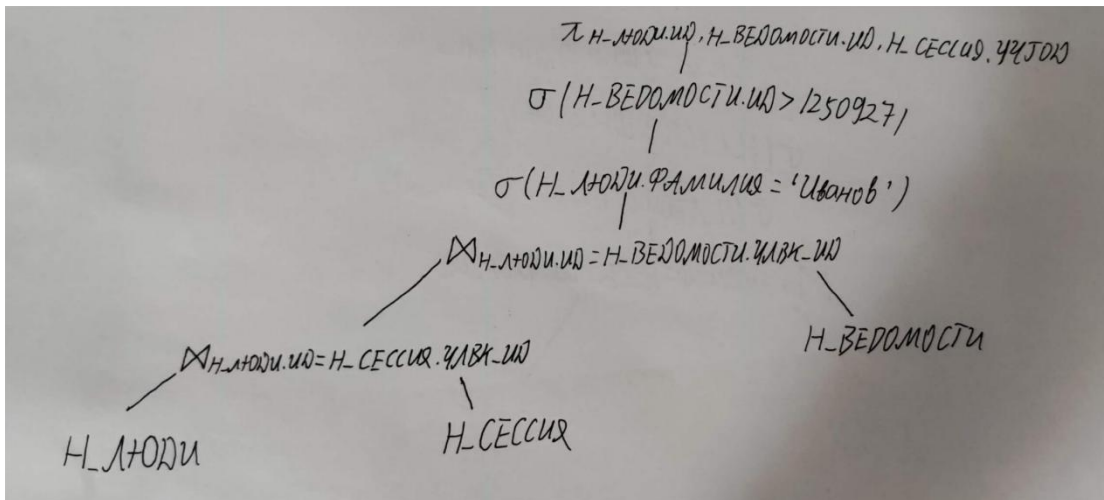 π Н_ЛЮДИ.ИД, Н_ВЕДОМОСТИ.ИД, Н_СЕССИЯ.УЧГОД
σ(Н_ВЕДОМОСТИ.ИД > 1250927)
σ(Н_ЛЮДИ.ФАМИЛИЯ = 'Иванов')
⋈ Н_ЛЮДИ.ИД = Н_ВЕДОМОСТИ.ЧЛВК_ИД
Н_ВЕДОМОСТИ
⋈ Н_ЛЮДИ.ИД = Н_СЕССИЯ.ЧЛВК_ИД
Н_ЛЮДИ
Н_СЕССИЯ